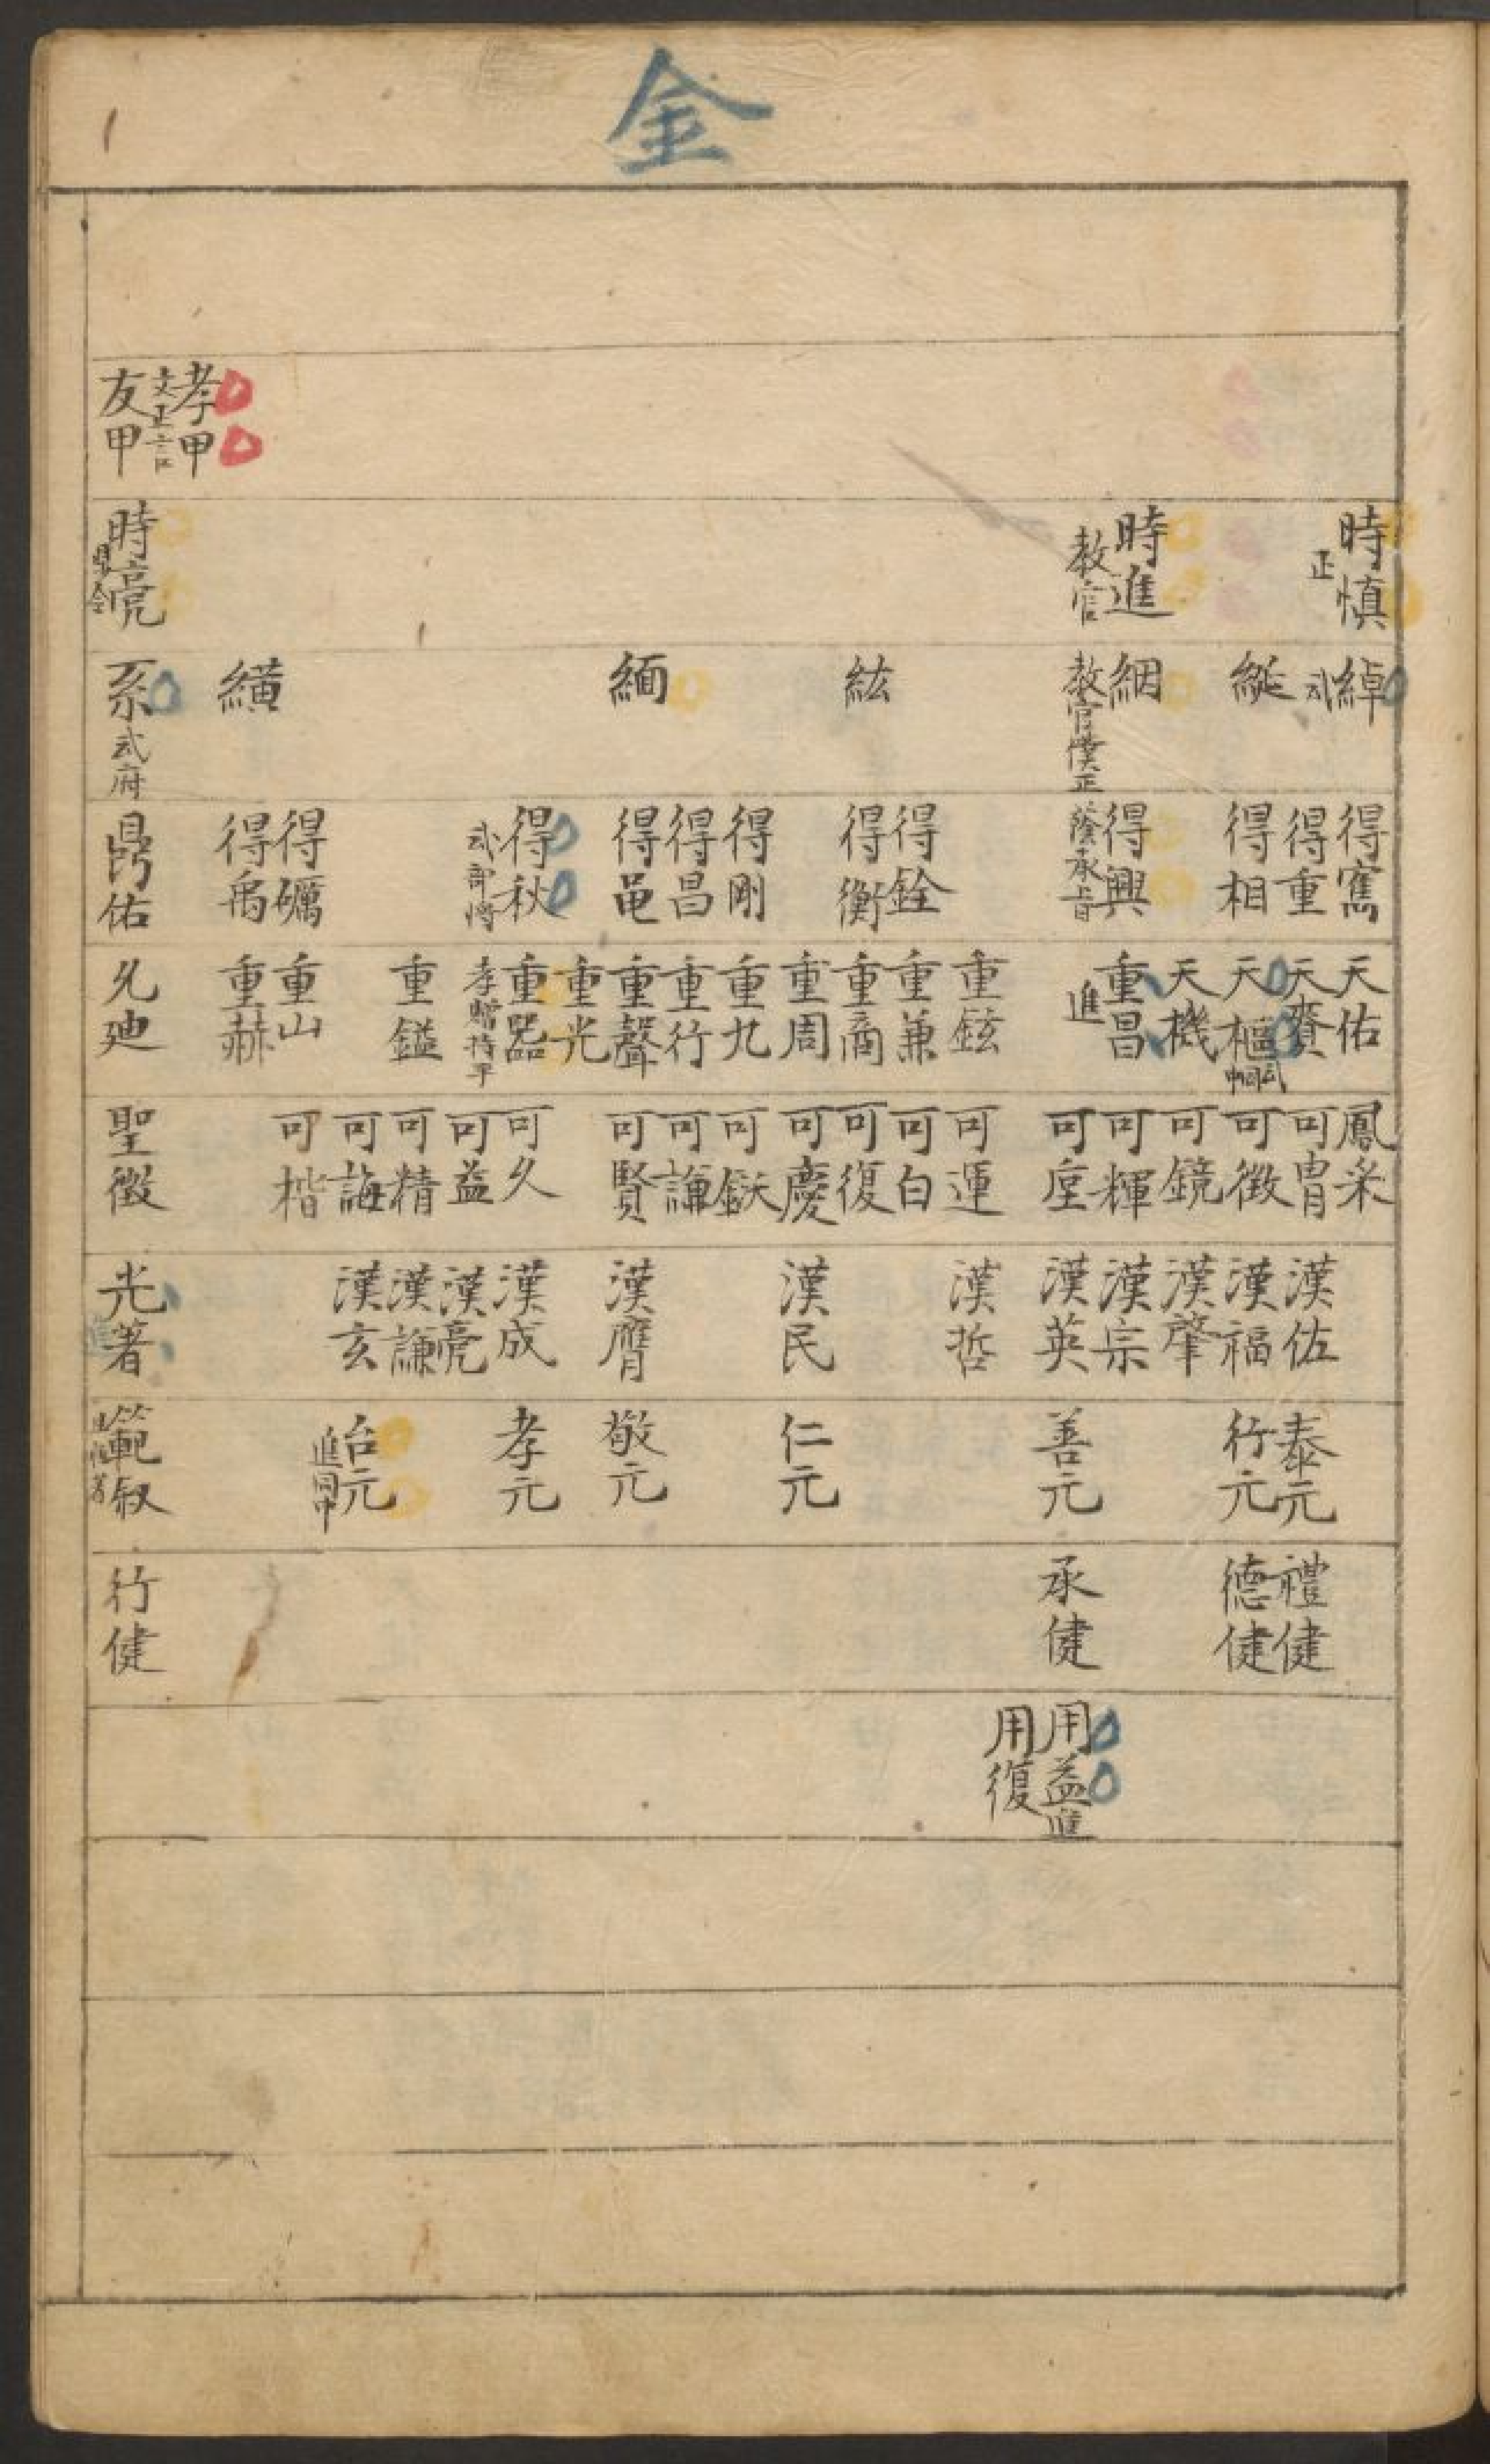 金
孝甲 文正言 友甲
時慎 正 時進 教官 時亮 縣令
綽 武 縦 絪 教官僕正 紘 緬 績 系 武府
得寯 得重 得相 得興 蔭承旨 得銓 得衡 得剛 得昌 得邑 得秋 武部将 得礪 得禹 鼎佑
天佑 天賚 天樞 武同中 天機 重昌 進 重鉉 重兼 重商 重周 重九 重行 重聲 重光 重器 孝贈持平 重鎰 重山 重赫 允廸
鳳采 可胄 可徴 可鏡 可輝 可垕 可運 可白 可復 可慶 可鈇 可謙 可賢 可久 可益 可精 可誨 可楷 聖徴
漢佐 漢福 漢肇 漢宗 漢英 漢哲 漢民 漢膺 漢成 漢亮 漢謙 漢玄 光著
泰元 行元 善元 仁元 敬元 孝元 台元 進同中 範叙
禮健 德健 承健 行健
用益 進 用復